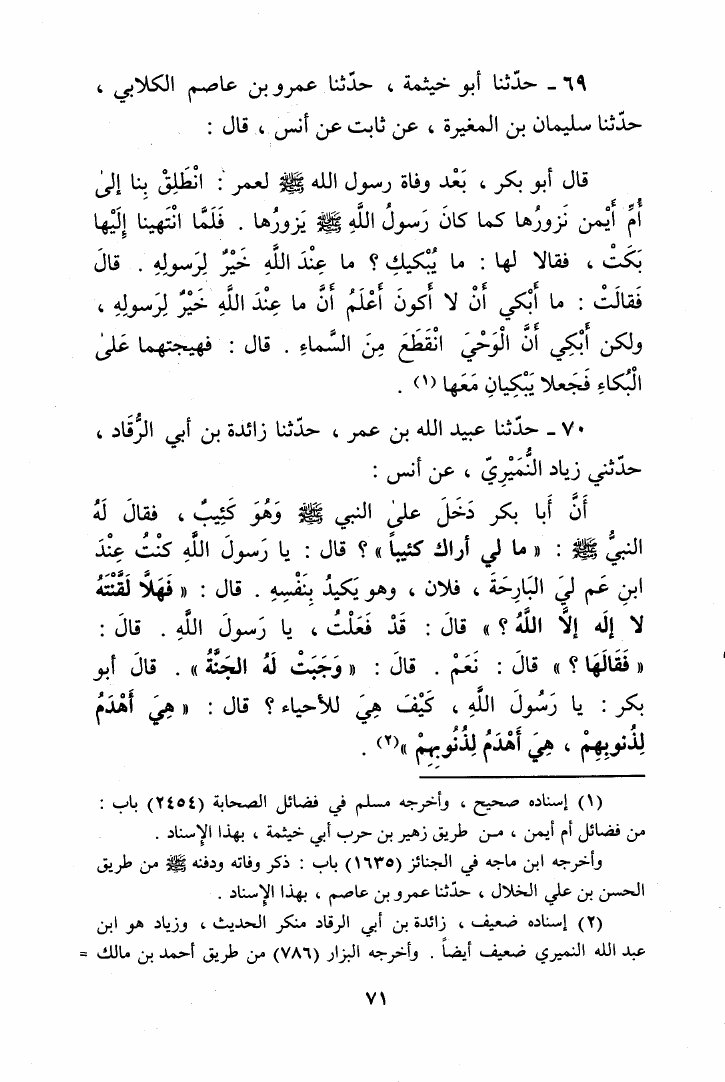 ٦٩ ـ حدّثنا أبو خيثمة ، حدّثنا عمرو بن عاصم الكلابي ،
حدّثنا سليمان بن المغيرة ، عن ثابت عن أنس ، قال :
قال أبو بكر ، بَعْد وفاة رسول الله ﷺ لعمر : انْطَلِقْ بِنا إلىٰ
أُمِّ أَيْمن نَزورُها كما كانَ رَسولُ اللَّهِ ﷺ يَزورُها . فَلَمَّا انْتَهينا إلَيْها
بَكَتْ ، فقالا لها : ما يُبْكيكِ ؟ ما عِنْدَ اللَّهِ خَيْرٌ لِرَسولِهِ . قالَ
فَقالَتْ : ما أَبْكي أَنْ لا أَكونَ أَعْلَمُ أَنَّ ما عِنْدَ اللَّهِ خَيْرٌ لِرَسولِهِ ،
ولكن أَبْكِي أَنَّ الْوَحْيَ انْقَطَعَ مِنَ السَّماءِ . قال : فهيجتهما عَلىٰ
الْبُكاءِ فَجَعلا يَبْكيانِ مَعَها (١) .
٧٠ ـ حدّثنا عبيد الله بن عمر ، حدّثنا زائدة بن أبي الرُّقَاد ،
حدّثني زياد النُّمَيْرِيّ ، عن أنس :
أَنَّ أَبا بكر دَخَلَ علىٰ النبي ﷺ وَهُوَ كَئِيبٌ ، فقالَ لَهُ
النبيُّ ﷺ : « ما لي أراك كئيباً » ؟ قال : يا رَسولَ اللَّهِ كنْتُ عِنْدَ
ابنِ عَم ليَ البَارِحَةَ ، فلان ، وهو يَكيدُ بِنَفْسِهِ . قال : « فَهَلَّا لَقَّنْتَهُ
لا إلَه إلاَّ اللَّهُ ؟ » قالَ : قَدْ فَعَلْتُ ، يا رَسولَ اللَّهِ . قالَ :
« فَقَالَهَا ؟ » قالَ : نَعَمْ . قالَ : « وَجَبَتْ لَهُ الجَنَّةُ » . قالَ أبو
بكر : يا رَسُولَ اللَّهِ ، كَيْفَ هِيَ للأحياء ؟ قال : « هِيَ أَهْدَمُ
لِذُنوبِهِمْ ، هِيَ أَهْدَمُ لِذُنُوبِهِمْ »(٢) .
(١) إسناده صحيح ، وأخرجه مسلم في فضائل الصحابة (٢٤٥٤) باب :
من فضائل أم أيمن ، مـن طريق زهير بن حرب أبي خيثمة ، بهذا الإسناد .
وأخرجه ابن ماجه في الجنائز (١٦٣٥) باب : ذكر وفاته ودفنه ﷺ من طريق
الحسن بن علي الخلال ، حدّثنا عمرو بن عاصم ، بهذا الإسناد .
(٢) إسناده ضعيف ، زائدة بن أبي الرقاد منكر الحديث ، وزياد هو ابن
عبد الله النميري ضعيف أيضاً . وأخرجه البزار (٧٨٦) من طريق أحمد بن مالك =
٧١